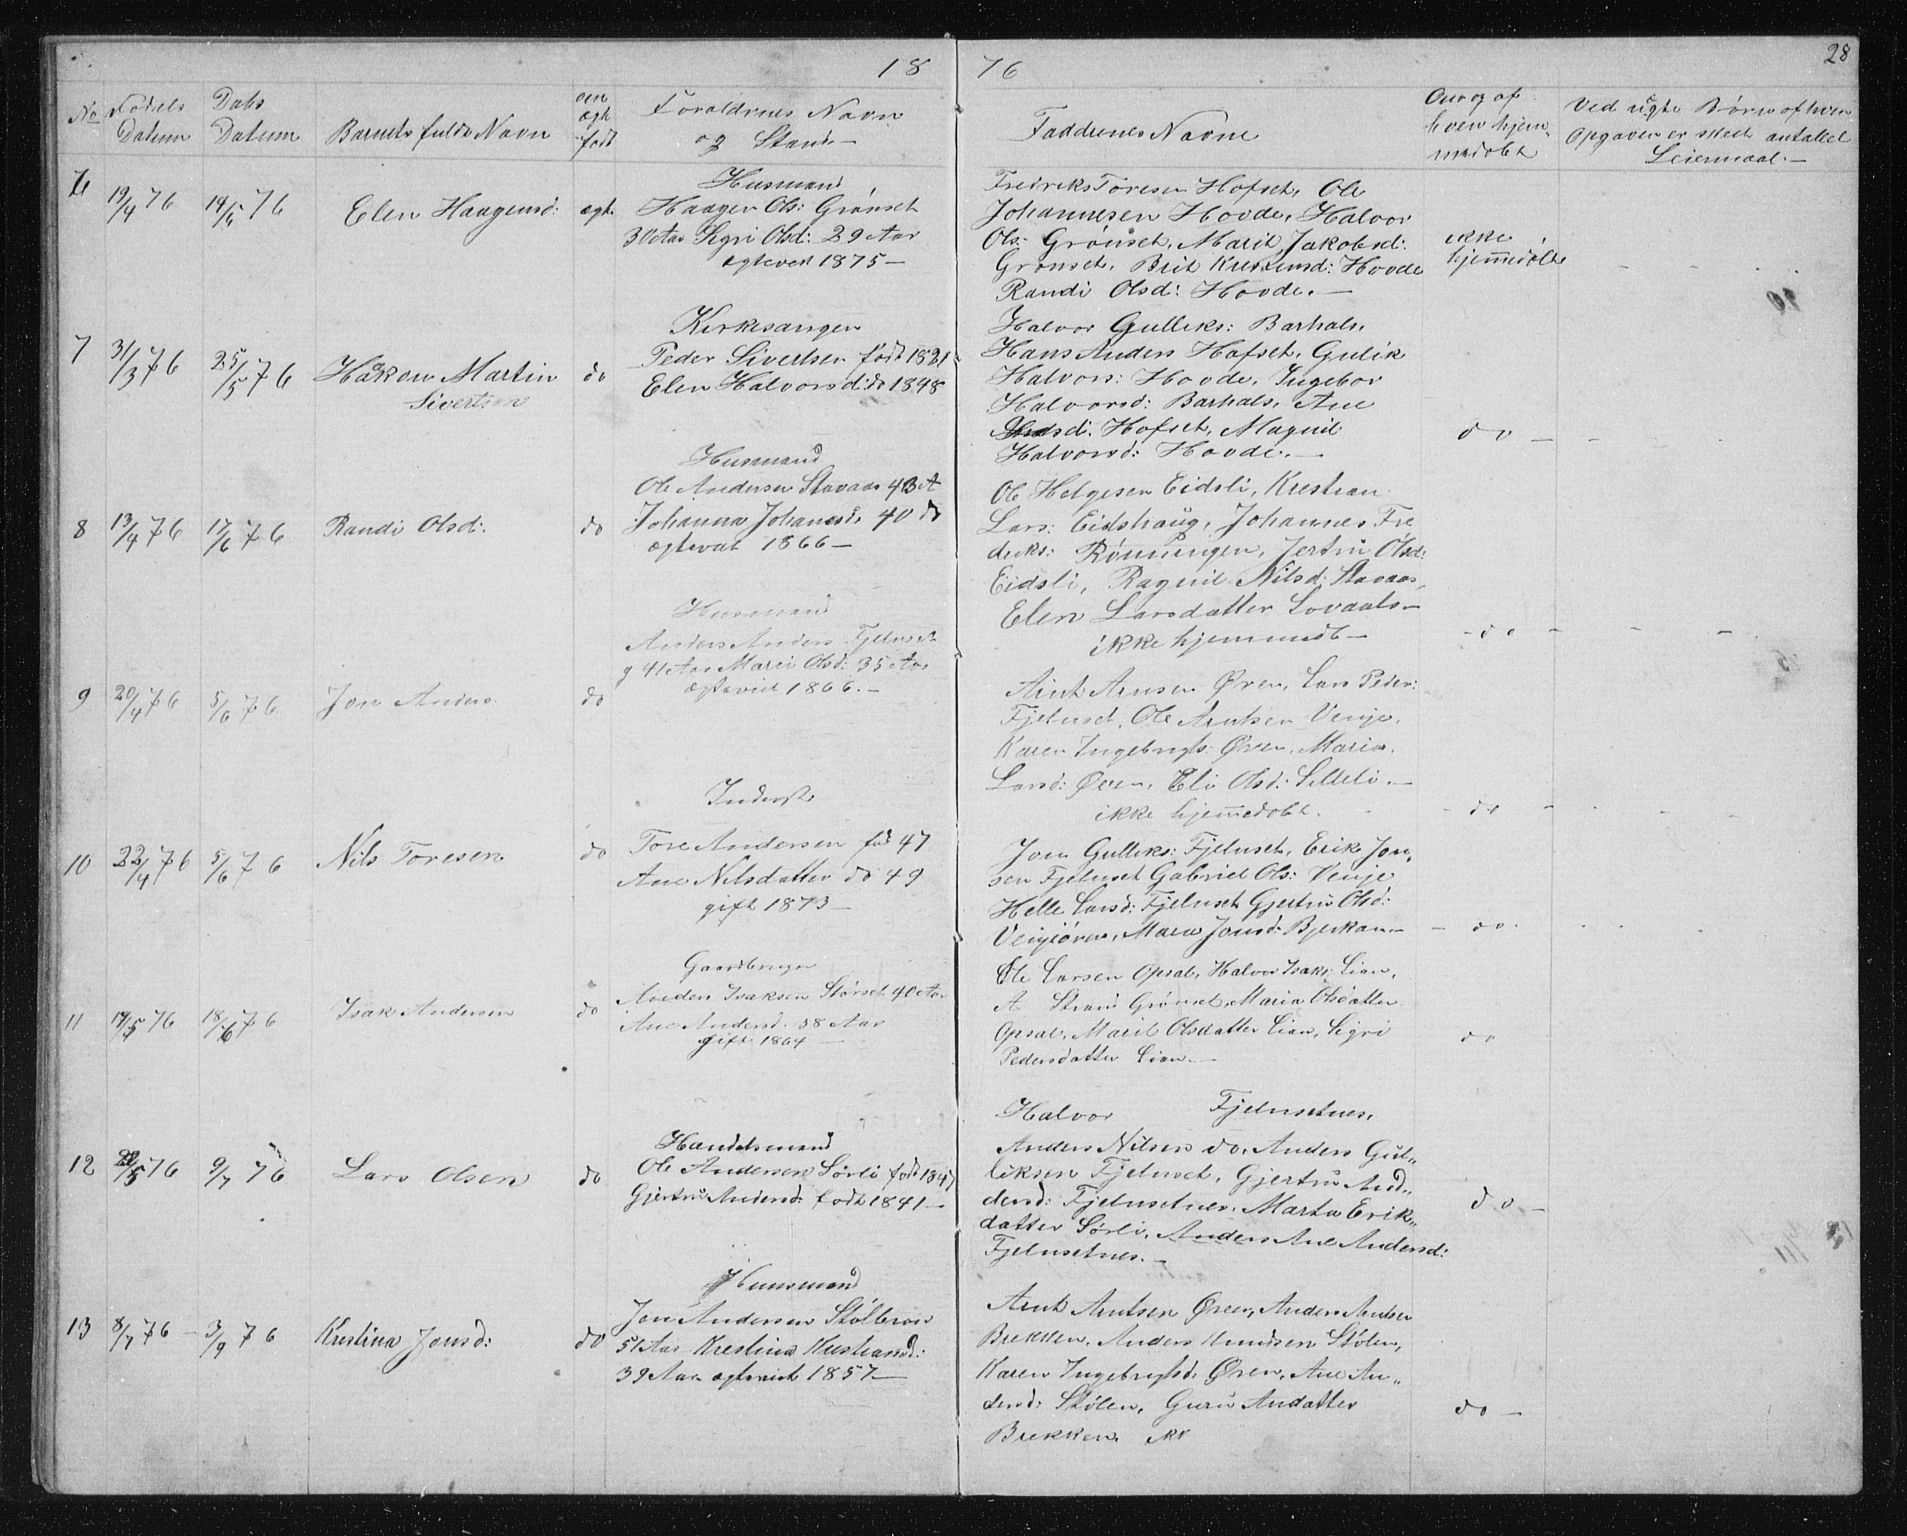 18 76
28
No Fødels Datum
Daabs Datum
Barnets fulde Navn
om ægte født
Foraldrenes Navn og Stand
Faddrenes Navne
Om og af hvem hjemmedøbt
Ved uægte Børn af hvem Opgaven er skeet antallet Leiermaal.
19/4 76
14/5 76
Elen Haagensd:
ægte
Husmand
Haagen Ols: Grønset
30 Aar Sigri Olsd: 29 Aar
ægteved 1875
Fredrik Toresen Hofset, Ole
Johannesen Hovde, Halvor
Ols: Grønset, Marit Jakobsd:
Grønset, Brit Krestensd: Hovde
Randi Olsd: Hovde.
ikke
hjemedøbt
7
31/3 76
25/5 76
Håkon Martin
Sivertsen
do
Kirkesanger
Peder Sivertsen født 1821
Elen Halvorsd: do 1848
Halvor Gulliks: Barhals,
Hans Anders Hofset, Gulik
Halvors: Hovde, Ingebor
Halvorsd: Barhals, Ane
Hofset, Magnil
Halvorsd: Hovde.
do
8
13/4 76
17/6 76
Randi Olsd:
do
Husmand
Ole Andersen Stavaas 43 A
Johanna Johanesd: 40 do
ægteviet 1866
Ole Helgesen Eidsli, Krestian
Lars: Eidshaug, Johannes Fre
deriks: Rønningen, Jertru Olsd:
Eidsli, Ragnil Nilsd: Stavaas,
Elen Larsdatter Lovaas
ikke hjemmedøbt
do
9
20/4 76
5/6 76
Jon Anders
do
Husmand
Anders Anders Fjelnset
g 41 Aar Marit Olsd: 35 Aar
ægteviet 1866.
Arnt Arnsen Øren, Lars Peder:
Fjelnset, Ole Arntsen Venje,
Karen Ingebrigts: Øren, Maria
Larsd: Øren, Eli Olsd: Lilleli
ikke hjemedøbt.
do
10
22/4 76
5/6 76
Nils Toresen
do
Inderst
Tore Andersen fød 47
Ane Nilsdatter do 49
gift 1873
Jon Gulliks: Fjelnset, Erik Jon
sen Fjelnset Gabriel Ols: Venje
Helle Larsd: Fjelnset Gjertru Olsd:
Venjeøren, Maria Jonsd: Bjerkan
do
11
14/5 76
18/6 76
Isak Andersen
do
Gaardbruger
Anders Isaksen Størset 40 Aar
Ane Andersd. 38 Aar
gift 1864
Ole Larsen Opsal, Halvor Isaks: Lian,
A Strand Grønset, Maria Olsdatter
Opsal, Marit Olsdatter Lian, Sigri
Pedersdatter Lian.
do
12
/5 76
9/7 76
Lars Olsen
do
Handelsmand
Ole Andersen Sørli født 1847
Gjertru Andersd: født 1841
Halvor Fjelnsetnes,
Anders Nilsen do, Anders Gul
liksen Fjelnset, Gjertru And
dersd: Fjelnsetnes, Marta Erik
datter Sørli, Anders Ane Andersd:
Fjelnsetnes.
do
13
8/7 76
3/9 76
Krestina Jonsd:
do
Husmand
Jon Andersen Stølbron
51 Aar Krestina Krestiansd:
39 Aar ægteviet 1857
Arnt Arntsen Øren, Anders Anders
Brekken, Anders Knudsen Stølen,
Karen Ingebrigtsd: Øren, Ane An
dersd: Stølen, Guru Andatter
Brekken.
do